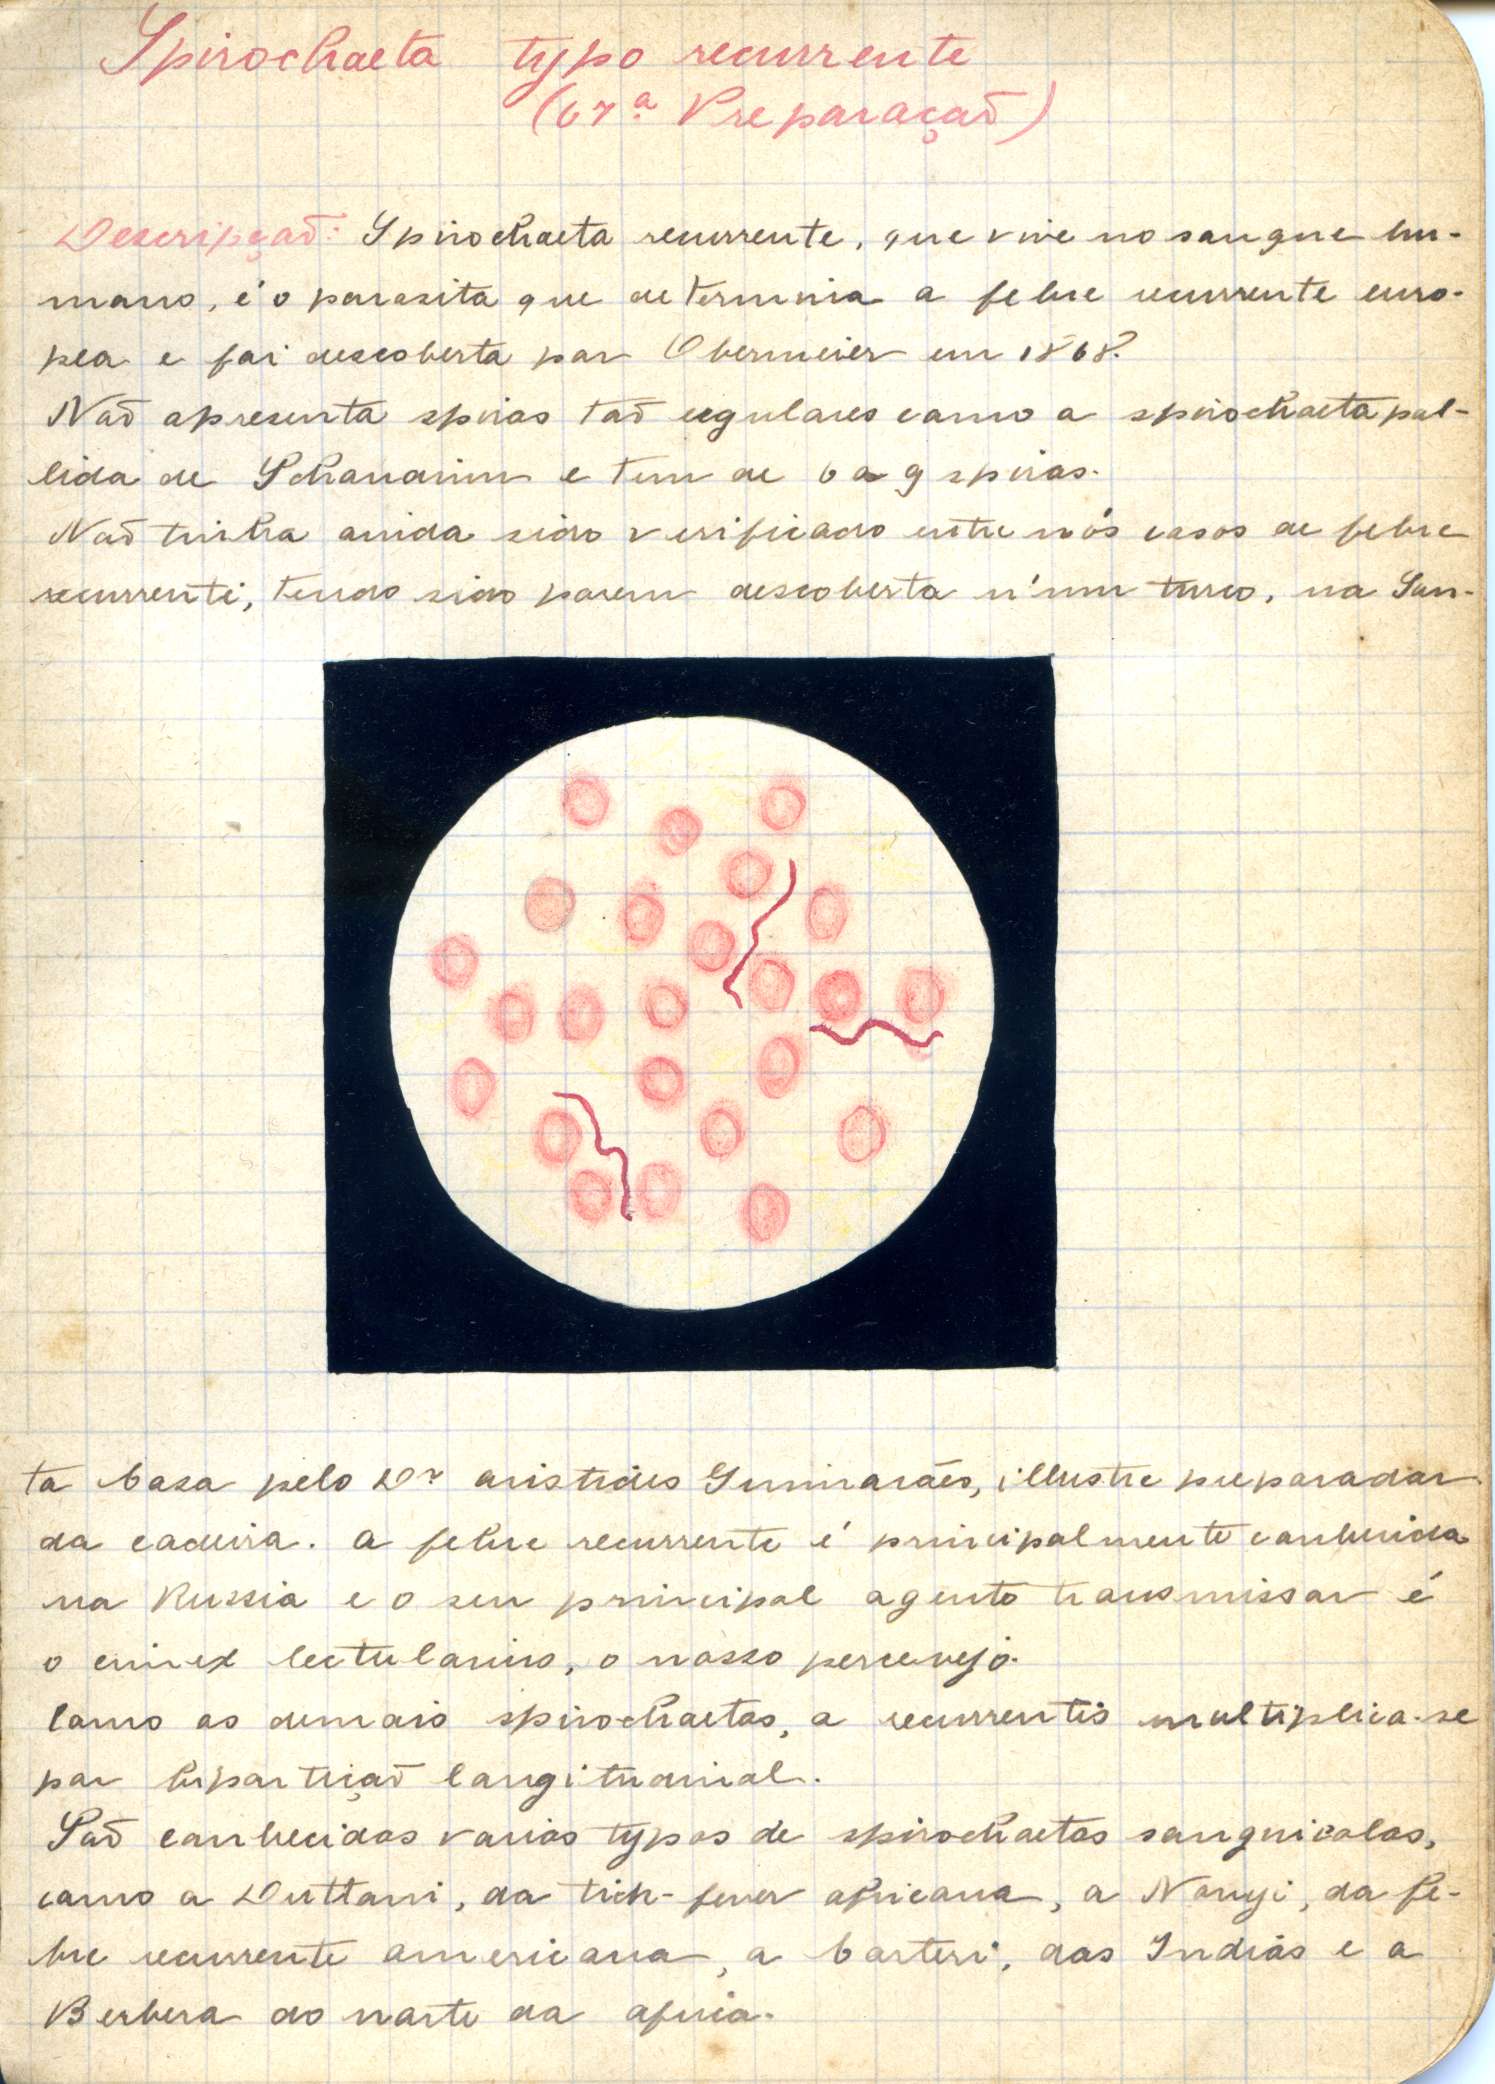 Spirochaeta typo recurrente
(67ª Preparação)
Descripção: Spirochaeta recurrente, que vive no sangue hu-
mano, é o parasita que determina a febre recurrente euro-
pea e foi descoberta por Obermeier em 1868.
Não apresenta spiras tão regulares como a spirochaeta pal-
lida de Schaudinn e tem de 6 a 9 spiras.
Não tinha ainda sido verificado entre nós casos de febre
recurrente, tendo sido porem descoberta n'um turco, na San-
ta Casa pelo Dr Aristides Guimarães, illustre preparador
da cadeira. A febre recurrente é principalmente conhecida
na Russia e o seu principal agente transmissor é
o cimex lectularius, o nosso percevejo.
Como as demais spirochaetas, a recurrentis multiplica-se
por bipartição longitudinal.
São conhecidos varios typos de spirochaetas sanguicolas,
como a Duttoni, da tick-fever africana, a Novyi, da fe-
bre recurrente americana, a Carteri, das Indias e a
Berbera do norte da Africa.